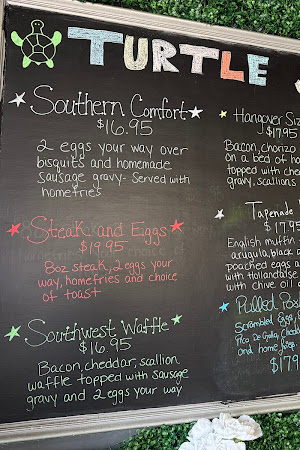 TURTLE
Southern Comfort
$16.95
2 eggs your way over
bisquits and homemade
sausage gravy- Served with
homefries
Steak and Eggs
$19.95
8oz steak, 2 eggs your
way, homefries and choice
of toast
Southwest Waffle
$16.95
Bacon, cheddar, scallion
waffle topped with sausage
gravy and 2 eggs your way
Hangover Siz
$17.95
Bacon, chorizo
on a bed of ho
topped with chee
gravy, scallions
Tapenade
$17.9
English muffin
arugula, black o
poached eggs a
with hollandaise
with chive oil
Pulled Por
Scrambled Eggs,
Pico De Gallo, Chedd
and home fries
$17.9